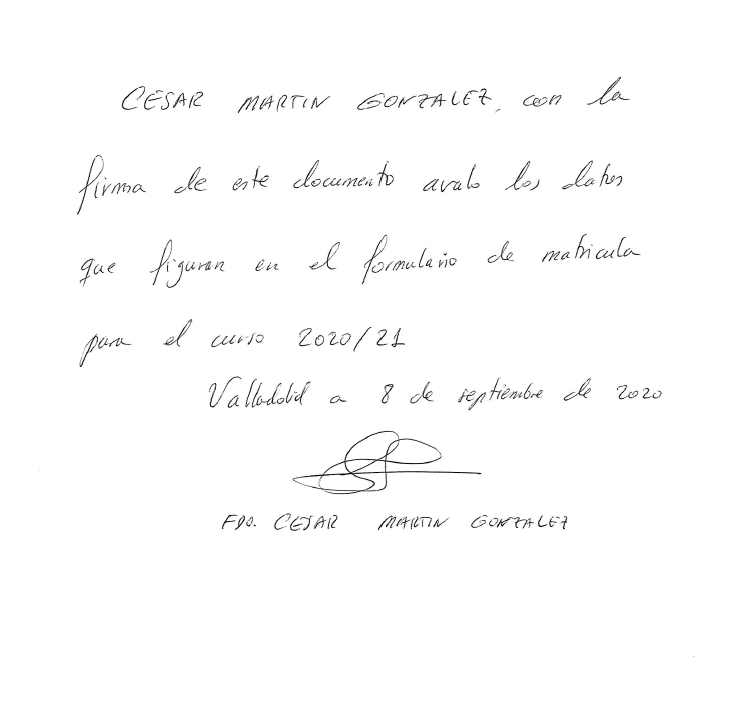 CESAR MARTIN GONZALEZ, con la
firma de este documento avalo los datos
que figuran en el formulario de matricula
para el curso 2020/21
Valladolid a 8 de septiembre de 2020
FDO. CESAR MARTIN GONZALEZ